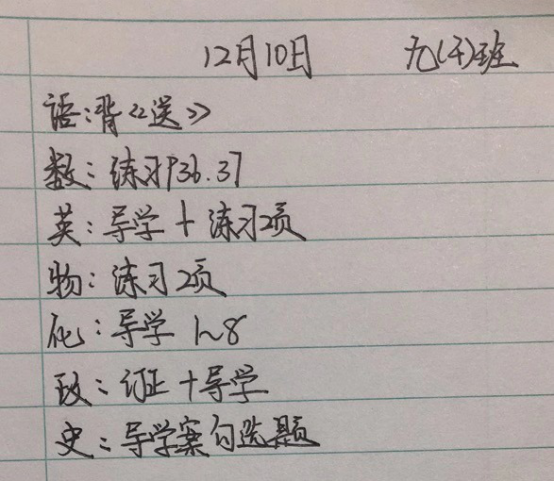 12月10日 九(千)班
语:背《送》
数:练习P36.37
英:导学+练习2页
物:练习2页
化:导学 1~8
政:订正+导学
史:导学案勾选题